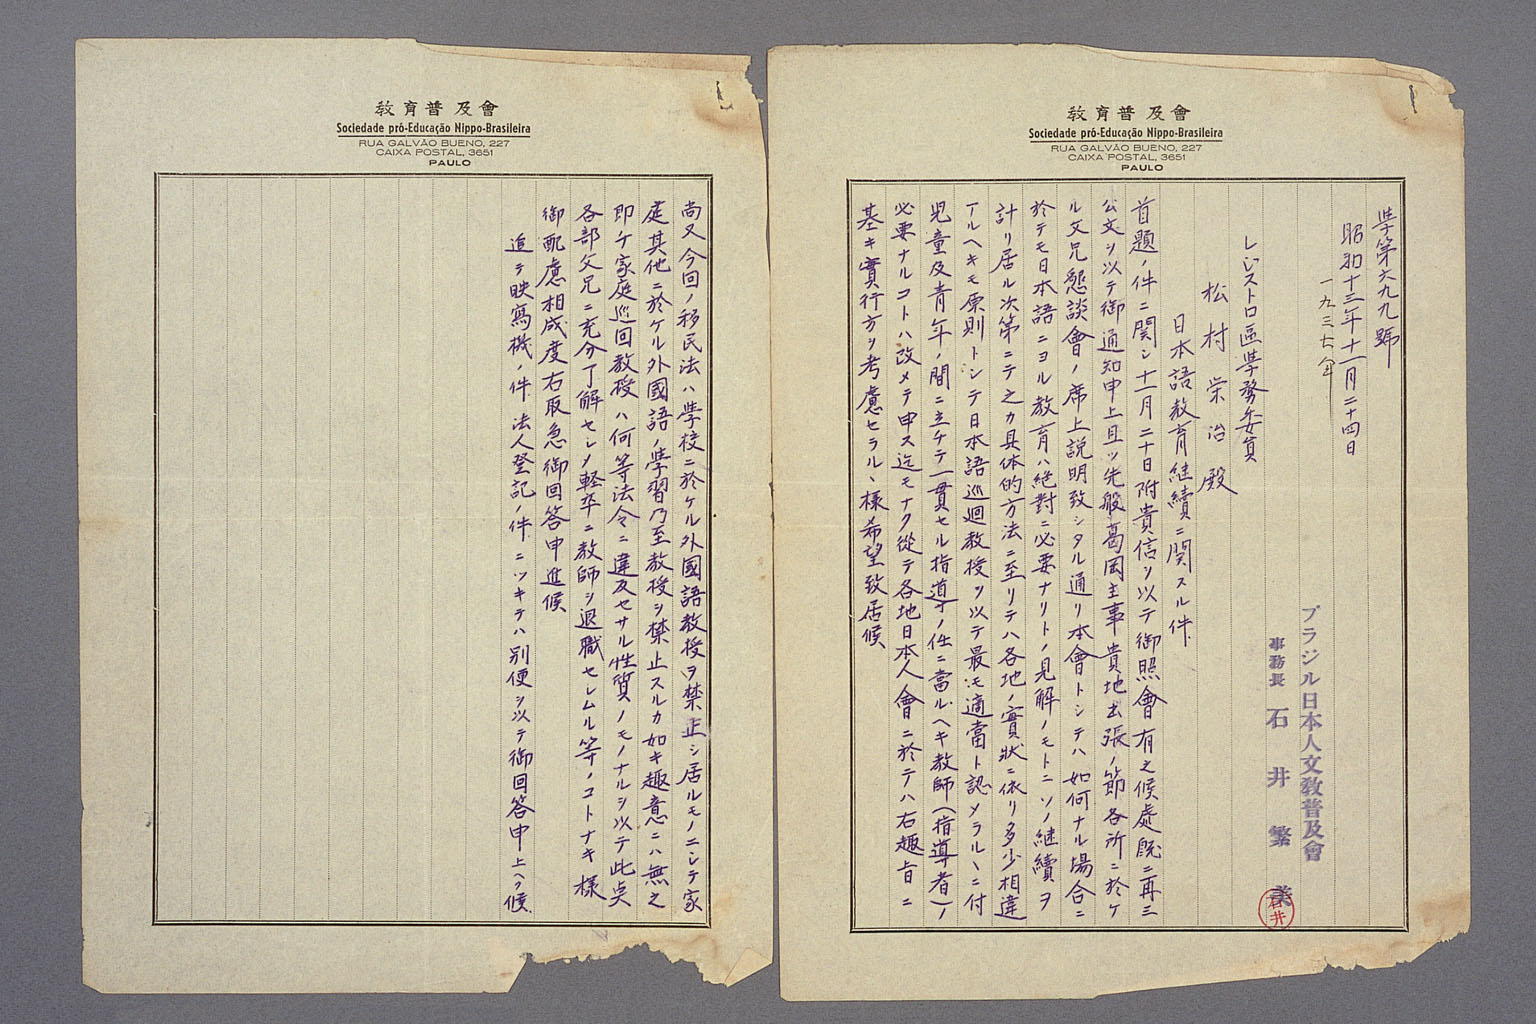 教育普及會
Sociedade pró-Educação Nippo-Brasileira
RUA GALVÃO BUENO, 227
CAIXA POSTAL, 3651
PAULO
学第六九九號
昭和十三年十一月二十四日
一九三七年
ブラジル日本人文教普及會
事務長 石井繁美
石井
レジストロ區学務委員
松村栄治殿
日本語教育継續ニ関スル件
首題ノ件ニ関シ十一月二十日附貴信ヲ以テ御照會有之候處既ニ再三
公文ヲ以テ御通知申上且ツ先般葛岡主事貴地出張ノ節各所ニ於ケ
ル父兄懇談會ノ席上説明致シタル通リ本會トシテハ如何ナル場合ニ
於テモ日本語ニヨル教育ハ絶對ニ必要ナリトノ見解ノモトニソノ継續ヲ
計リ居ル次第ニテ之カ具体的方法ニ至リテハ各地ノ實状ニ依リ多少相違
アルヘキモ原則トシテ日本語巡廻教授ヲ以テ最モ適當ト認メラルヽニ付
児童及青年ノ間ニ立チテ一貫セル指導ノ任ニ當ルヘキ教師（指導者）ノ
必要ナルコトハ改メテ申ス迄モナク從テ各地日本人會ニ於テハ右趣旨ニ
基キ實行方ヲ考慮セラルヽ様希望致居候
教育普及會
Sociedade pró-Educação Nippo-Brasileira
RUA GALVÃO BUENO, 227
CAIXA POSTAL, 3651
PAULO
尚又今回ノ移民法ハ学校ニ於ケル外國語教授ヲ禁止シ居ルモノニシテ家
庭其他ニ於ケル外國語ノ学習乃至教授ヲ禁止スルカ如キ趣意ニハ無之
即ケ家庭巡回教授ハ何等法令ニ違反セサル性質ノモノナルヲ以テ此点
各部父兄ニ充分了解セシメ軽卒ニ教師ヲ退職セシムル等ノコトナキ様
御配慮相成度右取急御回答申進候
追テ映寫機ノ件、法人登記ノ件ニツキテハ別便ヲ以テ御回答申上ヘク候